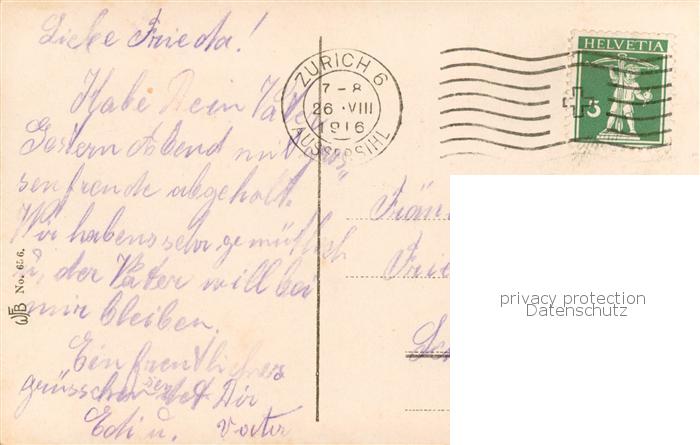 Liebe Frieda!
Habe Dein Vater
Gestern Abend mit gros„
sen freude abgeholt.
Wir habens sehr gemütlich
u, der Vater will bei
mir bleiben.
Ein freutlichers
grüsschen sendet Dir
Edi u. Vater
WFB No. 656.
ZÜRICH 6
7-8
26.VIII
1916
AUSSERSIHL
HELVETIA
5
Fräu
Frie
privacy protection
Datenschutz